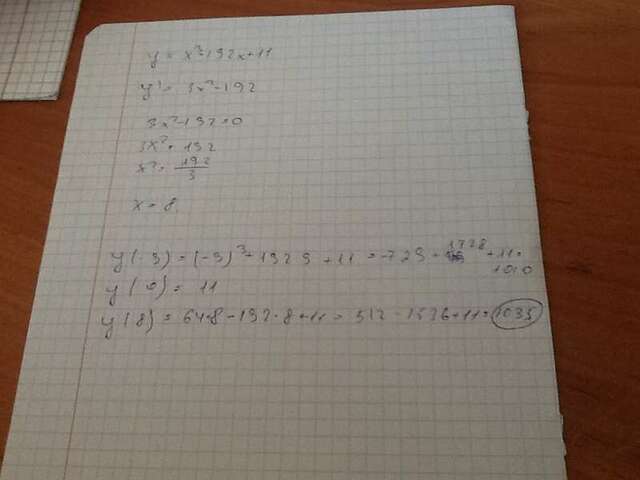 y = x³-192x+11
y' = 3x²-192
3x²-192=0
3x² = 192
x² = 192/3
x = 8
y(-9) = (-9)³+192·9+11 = -729+1728+11=
1010
y(0) = 11
y(8) = 64·8-192·8+11 = 512-1536+11=1035